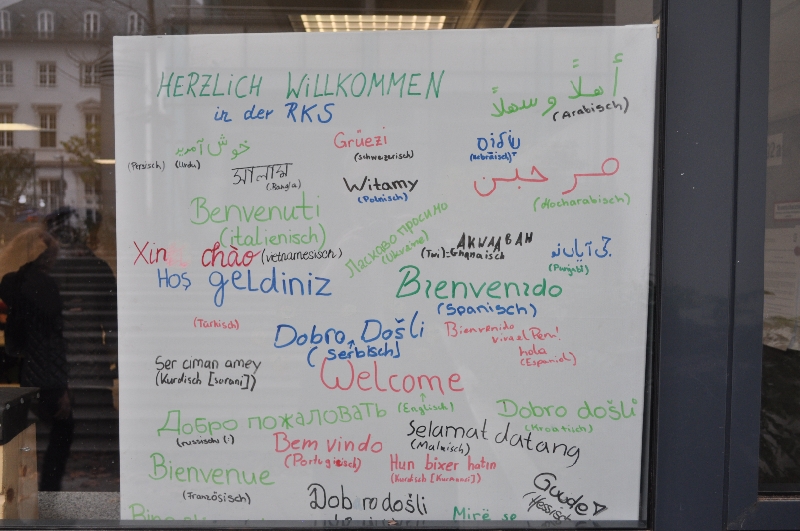 HERZLICH WILLKOMMEN
in der RKS
أهلاً و سهلاً
(Arabisch)
خوش آمدید
(Persisch)
(Urdu)
Grüezi
(schweizerisch)
שלום
(Hebräisch)
(Bangla)
Witamy
(Polnisch)
مرحبن
(Hocharabisch)
Benvenuti
(italienisch)
Ласкаво просимо
(Ukraine)
AKWAABAH
(Twi)-Ghanaisch
(Punjabi)
Xin chào (vietnamesisch)
Hoş geldiniz
(Türkisch)
Bienvenido
(Spanisch)
Dobro Došli
(Serbisch)
Bienvenido
viva el Peru!
hola
(Espaniel)
Ser ciman amey
(Kurdisch [sorani])
Welcome
(Englisch)
Добро пожаловать
(russisch (:)
Dobro došli
(Kroatisch)
Selamat datang
(Malaiisch)
Bem vindo
(Portugisisch)
Hun bixer hatin
(Kurdisch [Kurmanci])
Bienvenue
(Französisch)
Dobrodošli
Guude
Hessisch
Mirë se